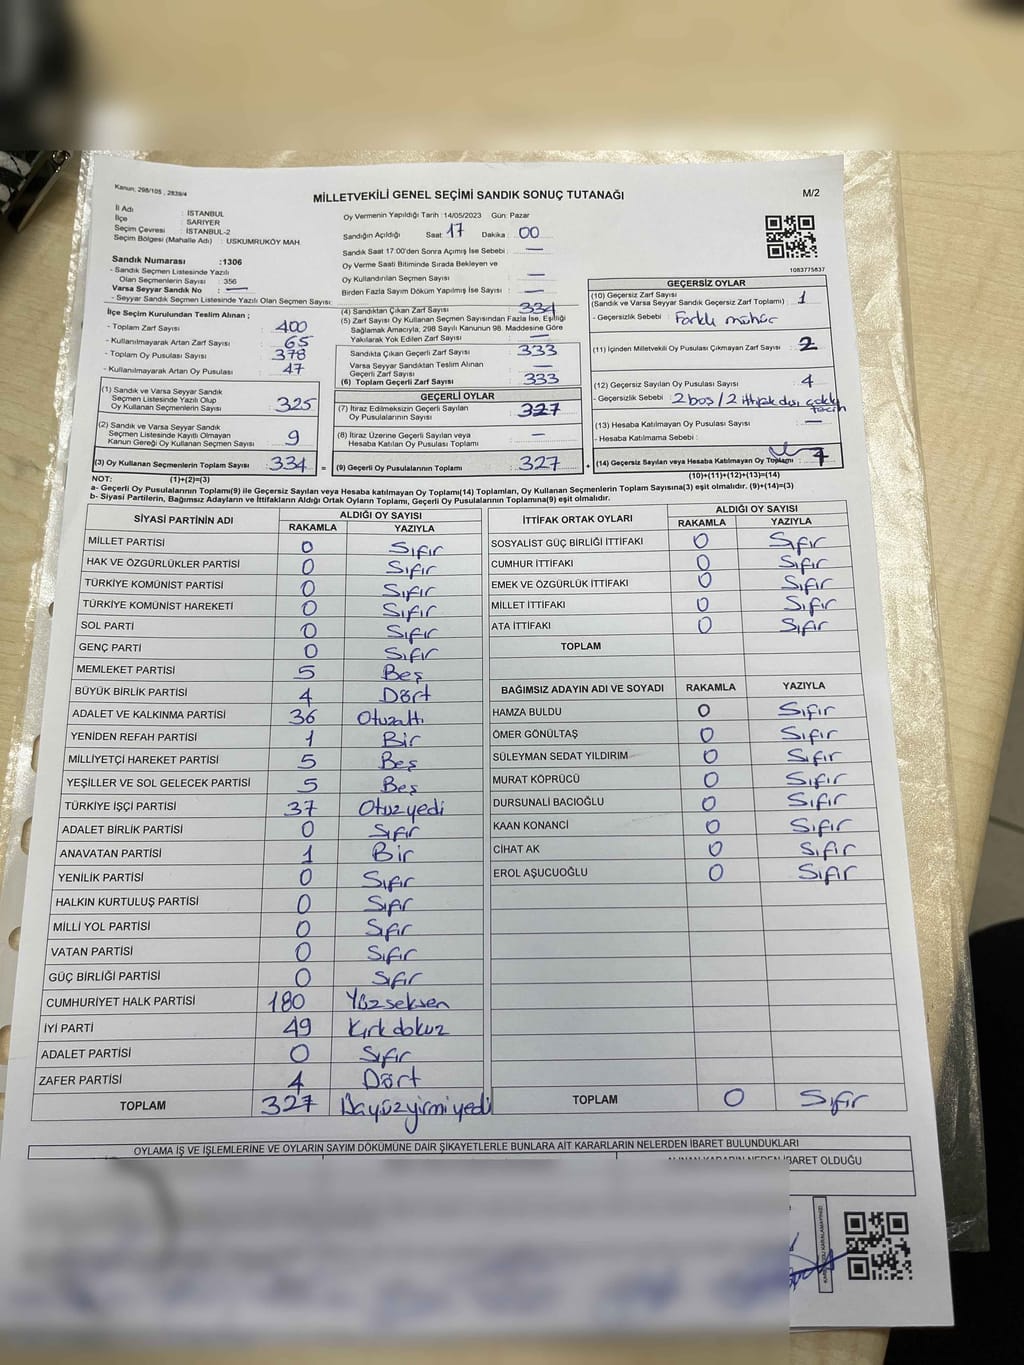 Kanun: 298/105 , 2839/4
MİLLETVEKİLİ GENEL SEÇİMİ SANDIK SONUÇ TUTANAĞI
M/2
İl Adı : İSTANBUL
İlçe : SARIYER
Seçim Çevresi : İSTANBUL-2
Seçim Bölgesi (Mahalle Adı) : USKUMRUKÖY MAH.
Sandık Numarası :1306
- Sandık Seçmen Listesinde Yazılı
Olan Seçmenlerin Sayısı : 356
Varsa Seyyar Sandık No : —
- Seyyar Sandık Seçmen Listesinde Yazılı Olan Seçmen Sayısı:
İlçe Seçim Kurulundan Teslim Alınan ;
- Toplam Zarf Sayısı : 400
- Kullanılmayarak Artan Zarf Sayısı : 65
- Toplam Oy Pusulası Sayısı : 378
- Kullanılmayarak Artan Oy Pusulası : 47
(1) Sandık ve Varsa Seyyar Sandık
Seçmen Listesinde Yazılı Olup
Oy Kullanan Seçmenlerin Sayısı : 325
(2) Sandık ve Varsa Seyyar Sandık
Seçmen Listesinde Kayıtlı Olmayan
Kanun Gereği Oy Kullanan Seçmen Sayısı : 9
(3) Oy Kullanan Seçmenlerin Toplam Sayısı : 334 =
Oy Vermenin Yapıldığı Tarih :14/05/2023 Gün: Pazar
Sandığın Açıldığı Saat: 17 Dakika : 00
Sandık Saat 17:00'den Sonra Açımış İse Sebebi : —
Oy Verme Saati Bitiminde Sırada Bekleyen ve
Oy Kullandırılan Seçmen Sayısı : —
Birden Fazla Sayım Döküm Yapılmış İse Sayısı : —
(4) Sandıktan Çıkan Zarf Sayısı : 334
(5) Zarf Sayısı Oy Kullanan Seçmen Sayısından Fazla İse, Eşitliği
Sağlamak Amacıyla, 298 Sayılı Kanunun 98. Maddesine Göre
Yakılarak Yok Edilen Zarf Sayısı : —
Sandıkta Çıkan Geçerli Zarf Sayısı : 333
Varsa Seyyar Sandıktan Teslim Alınan
Geçerli Zarf Sayısı : —
(6) Toplam Geçerli Zarf Sayısı : 333
GEÇERLİ OYLAR
(7) İtiraz Edilmeksizin Geçerli Sayılan
Oy Pusulalarının Sayısı : 327
(8) İtiraz Üzerine Geçerli Sayılan veya
Hesaba Katılan Oy Pusulası Toplamı : —
(9) Geçerli Oy Pusulalarının Toplamı : 327 +
1083775837
GEÇERSİZ OYLAR
(10) Geçersiz Zarf Sayısı
(Sandık ve Varsa Seyyar Sandık Geçersiz Zarf Toplamı) : 1
- Geçersizlik Sebebi : Farklı mühür
(11) İçinden Milletvekili Oy Pusulası Çıkmayan Zarf Sayısı : 2
(12) Geçersiz Sayılan Oy Pusulası Sayısı : 4
- Geçersizlik Sebebi : 2 boş / 2 ittifak dışı çoklu
tercih
(13) Hesaba Katılmayan Oy Pusulası Sayısı : —
- Hesaba Katılmama Sebebi :
(14) Geçersiz Sayılan veya Hesaba Katılmayan Oy Toplamı : 7
NOT: (1)+(2)=(3) (10)+(11)+(12)+(13)=(14)
a- Geçerli Oy Pusulalarının Toplamı(9) ile Geçersiz Sayılan veya Hesaba katılmayan Oy Toplamı(14) Toplamları, Oy Kullanan Seçmenlerin Toplam Sayısına(3) eşit olmalıdır. (9)+(14)=(3)
b- Siyasi Partilerin, Bağımsız Adayların ve İttifakların Aldığı Ortak Oyların Toplamı, Geçerli Oy Pusulalarının Toplamına(9) eşit olmalıdır.
SİYASİ PARTİNİN ADI ALDIĞI OY SAYISI
RAKAMLA YAZIYLA
MİLLET PARTİSİ 0 Sıfır
HAK VE ÖZGÜRLÜKLER PARTİSİ 0 Sıfır
TÜRKİYE KOMÜNİST PARTİSİ 0 Sıfır
TÜRKİYE KOMÜNİST HAREKETİ 0 Sıfır
SOL PARTİ 0 Sıfır
GENÇ PARTİ 0 Sıfır
MEMLEKET PARTİSİ 5 Beş
BÜYÜK BİRLİK PARTİSİ 4 Dört
ADALET VE KALKINMA PARTİSİ 36 Otuzaltı
YENİDEN REFAH PARTİSİ 1 Bir
MİLLİYETÇİ HAREKET PARTİSİ 5 Beş
YEŞİLLER VE SOL GELECEK PARTİSİ 5 Beş
TÜRKİYE İŞÇİ PARTİSİ 37 Otuzyedi
ADALET BİRLİK PARTİSİ 0 Sıfır
ANAVATAN PARTİSİ 1 Bir
YENİLİK PARTİSİ 0 Sıfır
HALKIN KURTULUŞ PARTİSİ 0 Sıfır
MİLLİ YOL PARTİSİ 0 Sıfır
VATAN PARTİSİ 0 Sıfır
GÜÇ BİRLİĞİ PARTİSİ 0 Sıfır
CUMHURİYET HALK PARTİSİ 180 Yüzseksen
İYİ PARTİ 49 Kırkdokuz
ADALET PARTİSİ 0 Sıfır
ZAFER PARTİSİ 4 Dört
TOPLAM 327 Üçyüzyirmiyedi
İTTİFAK ORTAK OYLARI ALDIĞI OY SAYISI
RAKAMLA YAZIYLA
SOSYALİST GÜÇ BİRLİĞİ İTTİFAKI 0 Sıfır
CUMHUR İTTİFAKI 0 Sıfır
EMEK VE ÖZGÜRLÜK İTTİFAKI 0 Sıfır
MİLLET İTTİFAKI 0 Sıfır
ATA İTTİFAKI 0 Sıfır
TOPLAM
BAĞIMSIZ ADAYIN ADI VE SOYADI RAKAMLA YAZIYLA
HAMZA BULDU 0 Sıfır
ÖMER GÖNÜLTAŞ 0 Sıfır
SÜLEYMAN SEDAT YILDIRIM 0 Sıfır
MURAT KÖPRÜCÜ 0 Sıfır
DURSUNALİ BACIOĞLU 0 Sıfır
KAAN KONANCİ 0 Sıfır
CİHAT AK 0 Sıfır
EROL AŞUCUOĞLU 0 Sıfır
TOPLAM 0 Sıfır
OYLAMA İŞ VE İŞLEMLERİNE VE OYLARIN SAYIM DÖKÜMÜNE DAİR ŞİKAYETLERLE BUNLARA AİT KARARLARIN NELERDEN İBARET BULUNDUKLARI
İBARET OLDUĞU